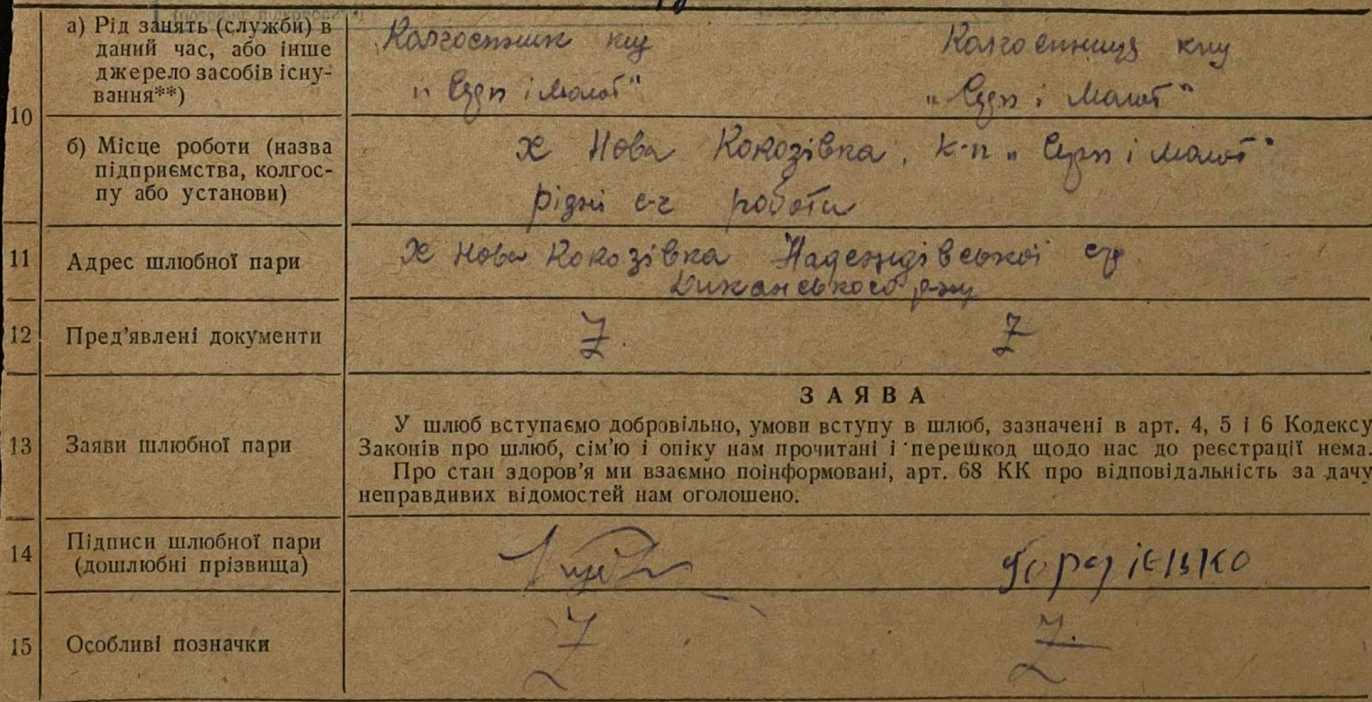 10
а) Рід занять (служби) в
даний час, або інше
джерело засобів існу-
вання**)
Колгоспник
„Серп і молот"
Колгоспниця
„Серп і Молот"
б) Місце роботи (назва
підприємства, колгос-
пу або установи)
х Нова Кокозівка, к-п „Серп і молот"
різні с-г роботи
11
Адрес шлюбної пари
х Нова Кокозівка Надеждівської с/р
Диканського р-ну
12
Пред'явлені документи
Z
Z
13
Заяви шлюбної пари
ЗАЯВА
У шлюб вступаємо добровільно, умови вступу в шлюб, зазначені в арт. 4, 5 і 6 Кодексу
Законів про шлюб, сім'ю і опіку нам прочитані і перешкод щодо нас до реєстрації нема.
Про стан здоров'я ми взаємно поінформовані, арт. 68 КК про відповідальність за дачу
неправдивих відомостей нам оголошено.
14
Підписи шлюбної пари
(дошлюбні прізвища)
15
Особливі позначки
Z
Z